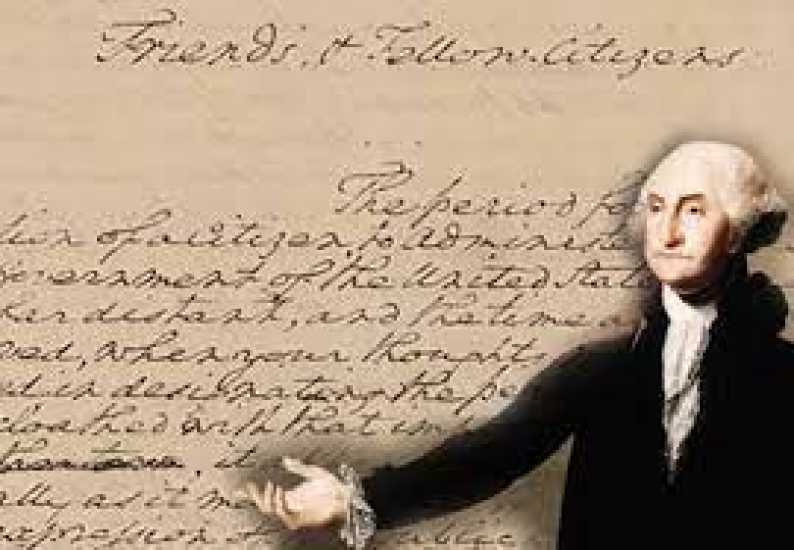 Friends, & Fellow-Citizens
The period fo
tion of a citizen, to adminis
overnment of the United State
her distant, and the time a
ved, when your thoughts
ed in designating the pe
cloathed with that im
it
ally as it ma
expression of public